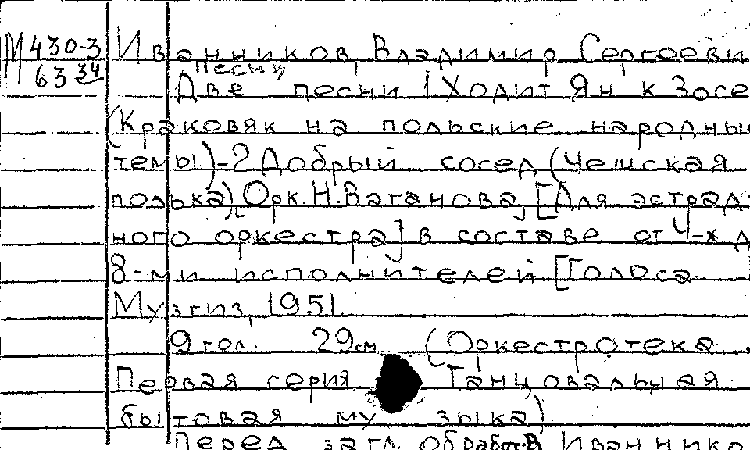 М 430-3 Иванников, Владимир Сергееви
63 34 Песни
Две песни 1 Ходит Ян к Зосе
(Краковяк на польские народны
темы)-2 Добрый сосед (чешская
полька). Орк. Н. Ваганова, [Для эстрад-
ного оркестра] в составе от 4-х д
8-ми исполнителей [Голоса
Музгиз, 1951.
9 гол. 29 см (Оркестротека
Первая серия Танцовальная
бытовая му зыка)
Перед загл. обработ. В Иваннико